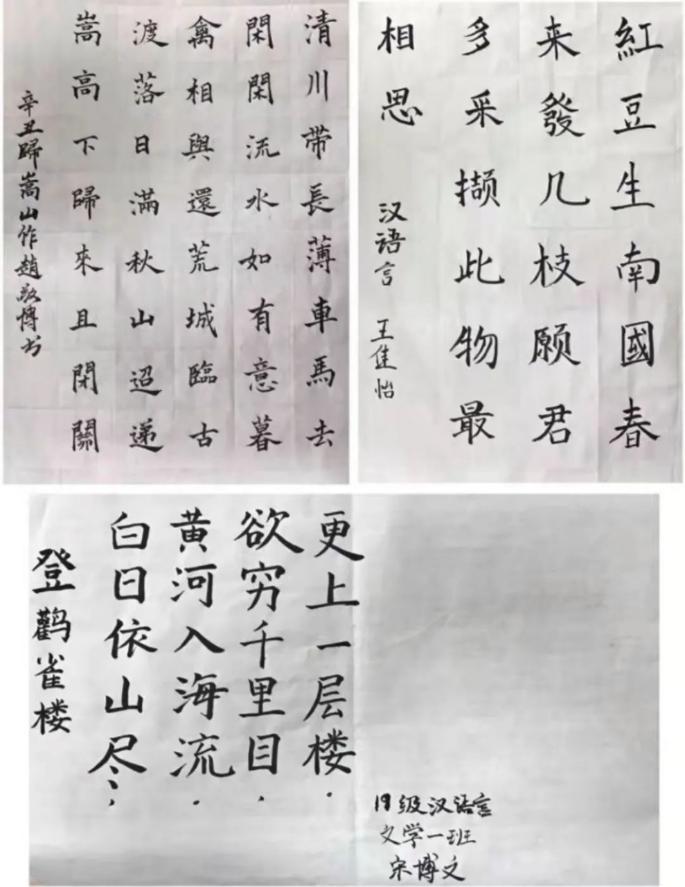 清川带長薄車馬去
閑閑流水如有意暮
禽相與還荒城臨古
渡落日滿秋山迢递
嵩高下歸來且閉關
辛丑歸嵩山作趙博书
紅豆生南國春
来發几枝願君
多采撷此物最
相思
汉语言 王佳怡
登鹳雀楼
白日依山尽，
黄河入海流.
欲穷千里目，
更上一层楼.
19级汉语言
文学一班
宋博文